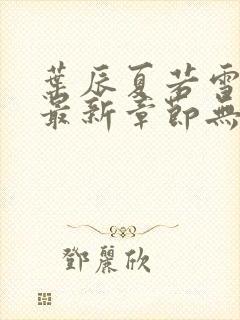 葉辰夏若雪
最新章節無
鄧麗欣